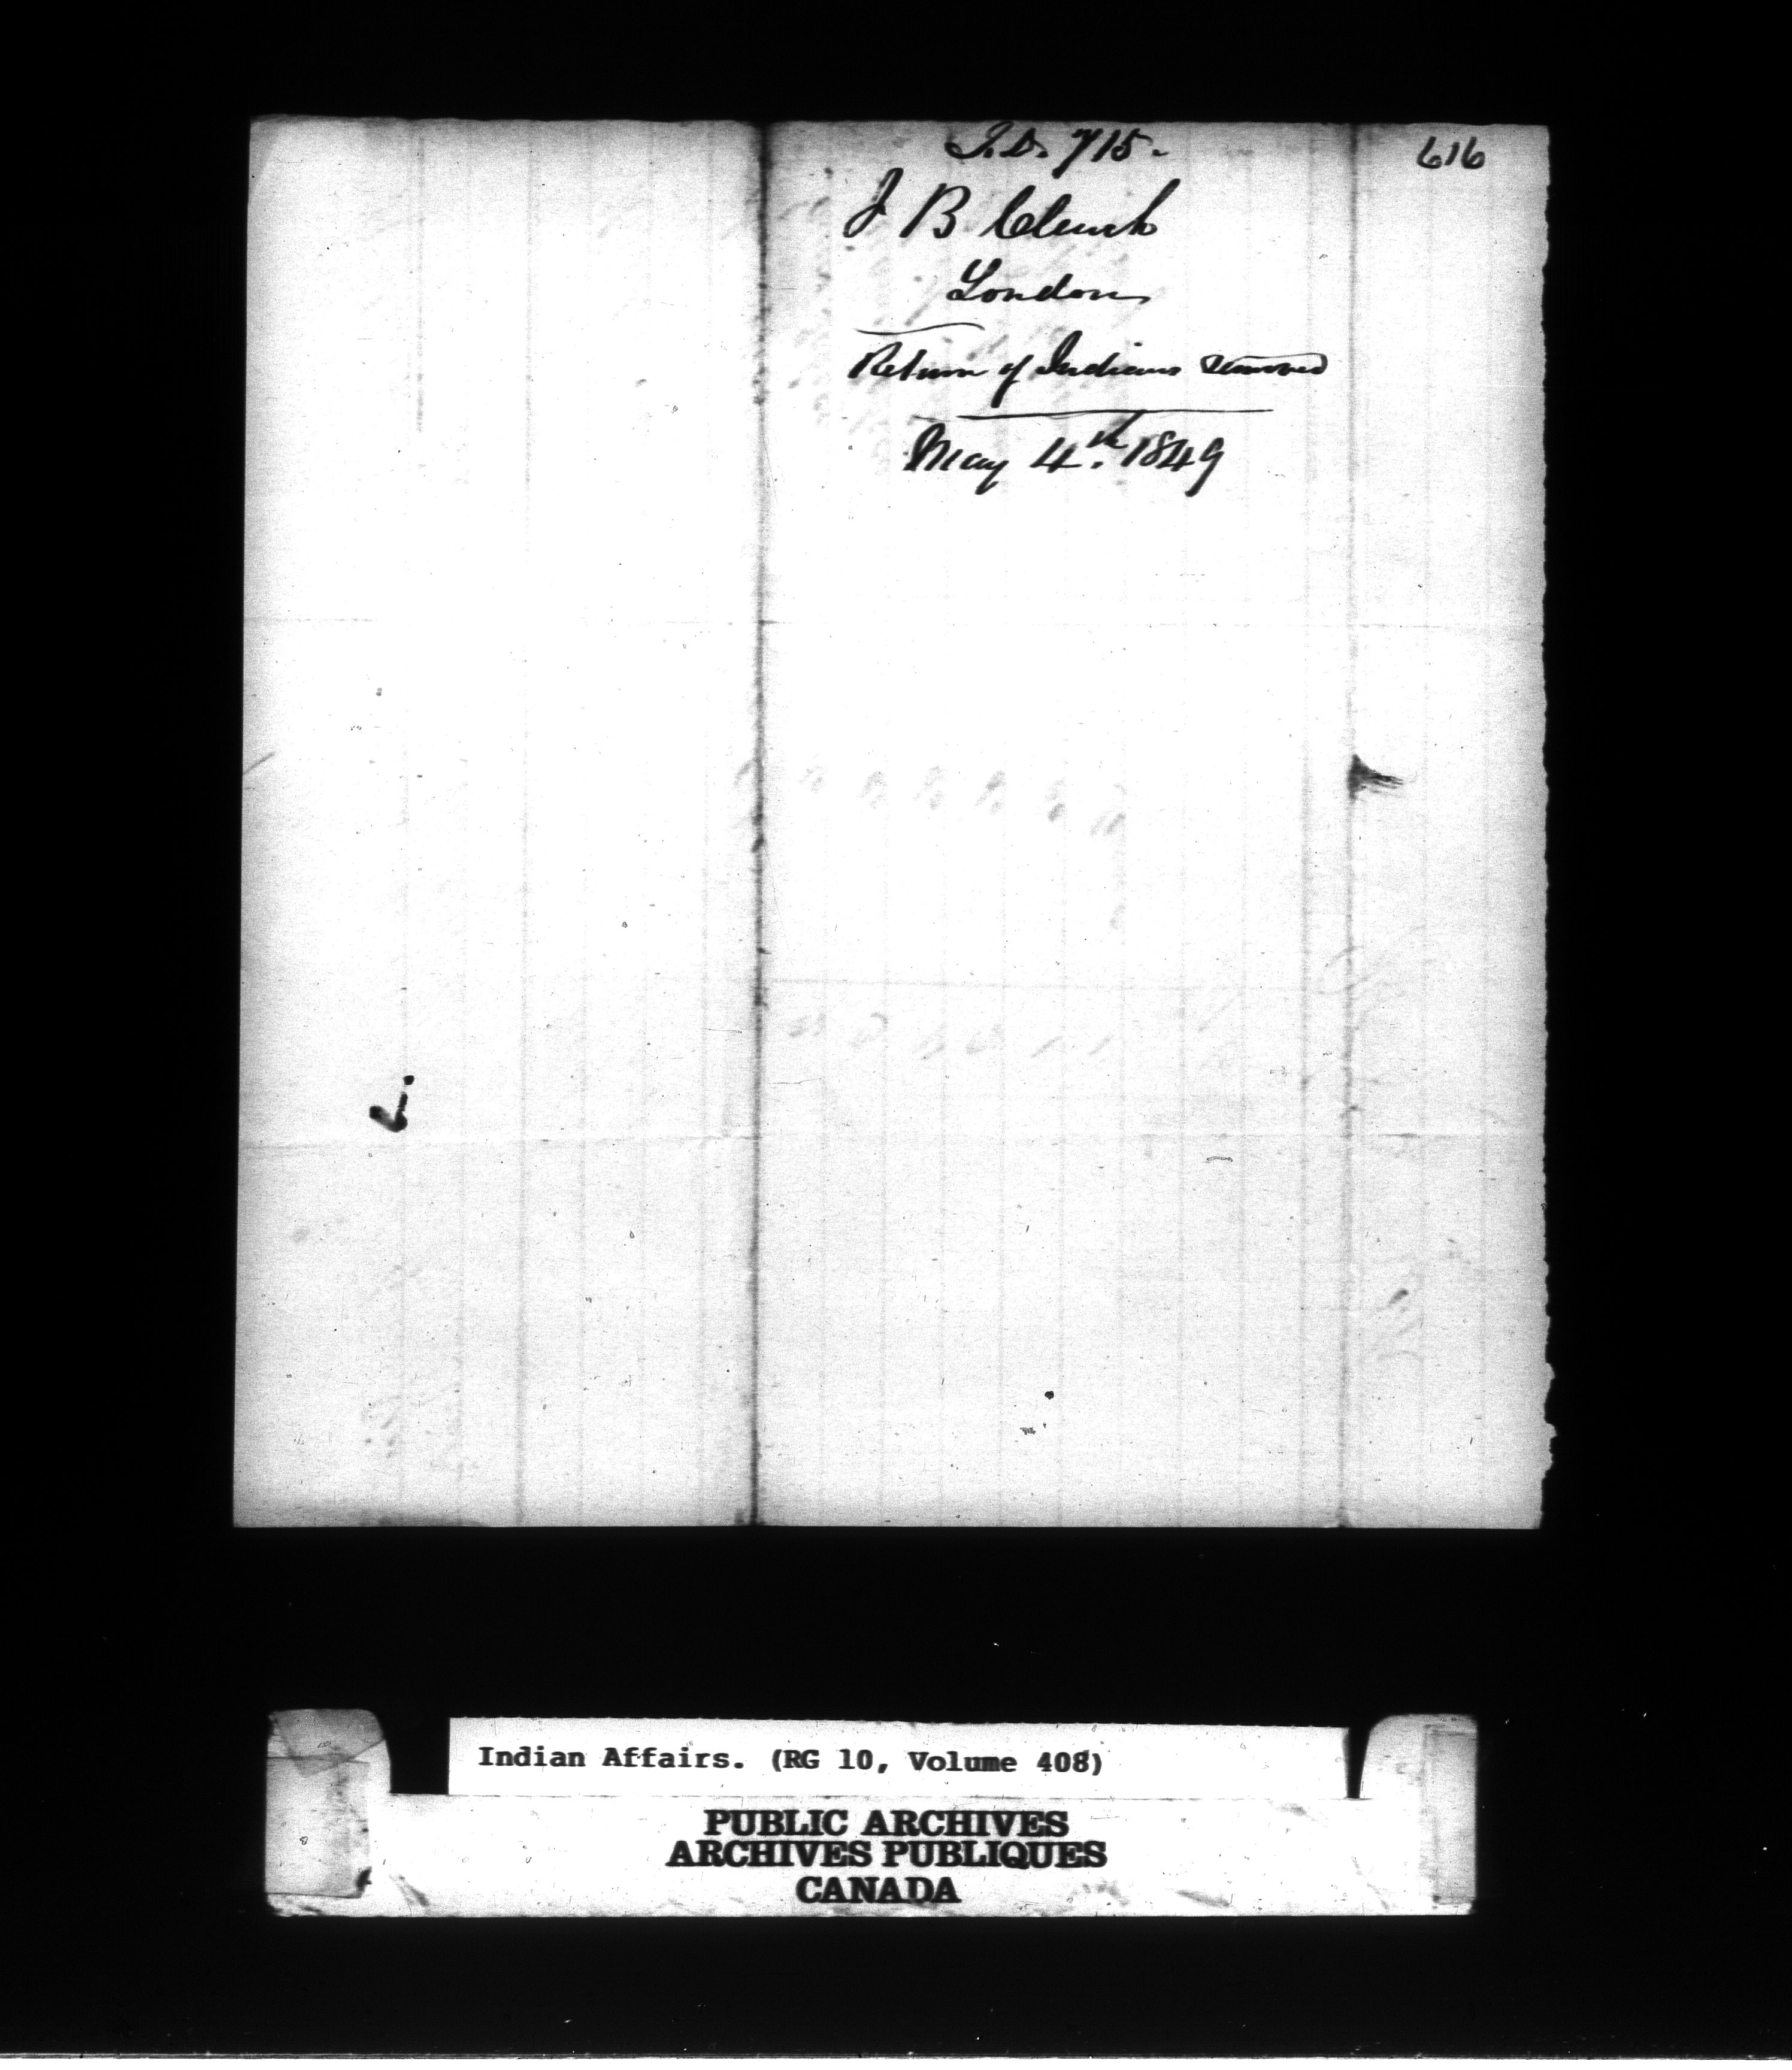 I.D. 715.
616
J B Clench
London
Return of Indians removed
May 4th. 1849
Indian Affairs. (RG 10, Volume 408)
PUBLIC ARCHIVES
ARCHIVES PUBLIQUES
CANADA